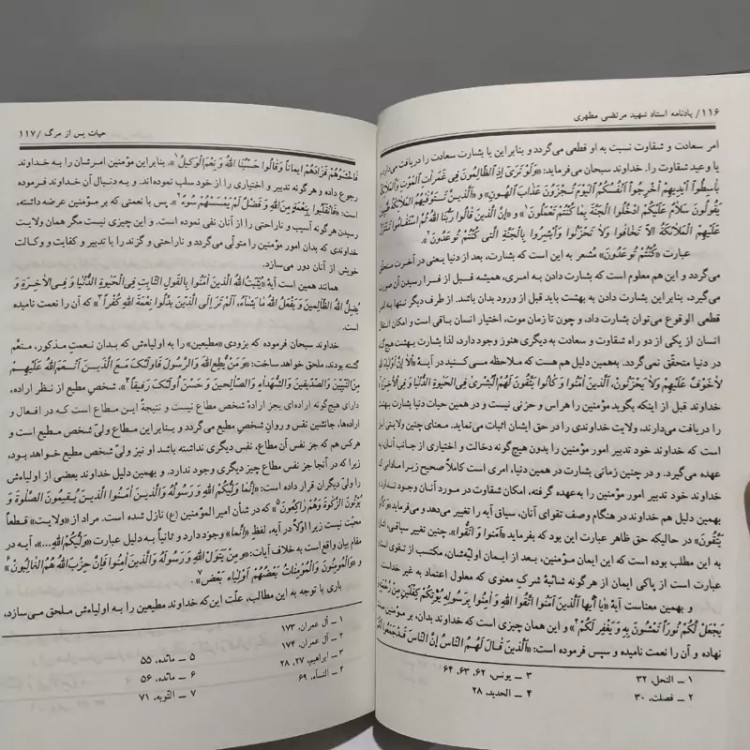 ۱۱۶/ یادنامه استاد شهید مرتضی مطهری
امر سعادت و شقاوت نسبت به او قطعی می‌گردد و بنابراین یا بشارت سعادت را دریافت می‌دارد
یا وعید شقاوت را. خداوند سبحان می‌فرماید: «وَلَوْ تَرىٰ إِذِ الظّالِمُونَ فِي غَمَراتِ الْمَوْتِ وَالْمَلآئِكَةُ
باسِطُوا أَيْدِيهِمْ أَخْرِجُوا أَنْفُسَكُمُ الْيَوْمَ تُجْزَوْنَ عَذابَ الْهُونِ» و «الَّذينَ تَتَوَفّاهُمُ الْمَلآئِكَةُ
يَقُولُونَ سَلامٌ عَلَيْكُمُ ادْخُلُوا الْجَنَّةَ بِما كُنْتُمْ تَعْمَلُونَ»۱ و «إِنَّ الَّذينَ قالُوا رَبُّنَا اللهُ ثُمَّ اسْتَقامُوا تَتَنَزَّلُ
عَلَيْهِمُ الْمَلائِكَةُ أَلاّ تَخافُوا وَلا تَحْزَنُوا وَأَبْشِرُوا بِالْجَنَّةِ الَّتي كُنْتُمْ تُوعَدُونَ»۲.
عبارت «كُنْتُمْ تُوعَدُونَ» مُشعر به این است که بشارت، بعد از دنیا یعنی در آخرت متحقق
می‌گردد و این هم معلوم است که بشارت دادن به امری، همیشه قبل از فرا رسیدن آن صورت
می‌گیرد، بنابراین بشارت دادن به بهشت باید قبل از ورود بدان باشد. از طرف دیگر تنها به امر
قطعی الوقوع می‌توان بشارت داد، و چون تا زمان موت، اختیار انسان باقی است و امکان انتقال
انسان از یکی از دو راه شقاوت و سعادت به دیگری هنوز وجود دارد، لذا بشارت بهشت
در دنیا متحقّق نمی‌گردد. و به‌همین دلیل هم که ملاحظه می‌کنید در آیهٔ «أَلا إِنَّ أَوْلِياءَ اللهِ
لاخَوْفٌ عَلَيْهِمْ وَلا يَحْزَنُونَ، الَّذينَ آمَنُوا وَكانُوا يَتَّقُونَ لَهُمُ الْبُشْرىٰ فِي الْحَيٰوةِ الدُّنْيا وَفِي الْآخِرَةِ»
خداوند قبل از اینکه بگوید مؤمنین را هراس و حزنی نیست و در همین حیات دنیا بشارت بهشت
را دریافت می‌دارند، ولایت خداوندی را در حق ایشان اثبات می‌نماید. معنای چنین ولایتی این
است که خداوند خود تدبیر امور مؤمنین را بدون هیچ‌گونه دخالت و اختیاری از جانب آنان، به
عهده می‌گیرد. و در چنین زمانی بشارت در همین دنیا، امری است کاملاً صحیح زیرا مادامی که
خداوند خود تدبیر امور مؤمنین را به‌عهده گرفته، امکان شقاوت در مورد آنان وجود ندارد. به
بهمین دلیل هم خداوند در هنگام وصف تقوای آنان، سیاق آیه را تغییر می‌دهد و می‌فرماید «وَكانُوا
يَتَّقُونَ» در حالیکه حق ظاهر عبارت این بود که بفرماید «آمَنُوا وَ اتَّقَوْا». چنین تغییر سیاقی اشاره
به این مطلب بوده است که این ایمان مؤمنین، بعد از ایمان اولیّه‌شان، مکتسب از تقوای است
عبارت است از پاکی ایمان از هرگونه شائبهٔ شرکِ معنوی که معلول اعتماد به غیر خداست.
و بهمین معناست آیهٔ «يا أَيُّهَا الَّذينَ آمَنُوا اتَّقُوا اللهَ وَ آمِنُوا بِرَسُولِهِ يُؤْتِكُمْ كِفْلَيْنِ مِنْ رَحْمَتِهِ
يَجْعَلْ لَكُمْ نُوراً تَمْشُونَ بِهِ وَ يَغْفِرْ لَكُمْ»۴ و این همان چیزی است که خداوند بدان، بر مؤمنین منّت
نهاده و آن را نعمت نامیده و سپس فرموده است: «الَّذينَ قالَ لَهُمُ النّاسُ إِنَّ النّاسَ قَدْ جَمَعُوا لَكُمْ
۱ ـ النحل، ۳۲
۲ ـ فصلت، ۳۰
۳ ـ یونس، ۶۲، ۶۳، ۶۴
۴ ـ الحدید، ۲۸
حیات پس از مرگ /۱۱۷
فَاخْشَوْهُمْ فَزادَهُمْ ايماناً وَقالُوا حَسْبُنَا اللهُ وَ نِعْمَ الْوَكيلُ»۱. بنابراین مؤمنین امرشان را به خداوند
رجوع داده و هرگونه تدبیر و اختیاری را از خود سلب نموده‌اند. و به دنبال آن خداوند فرموده
است: «فَانْقَلَبُوا بِنِعْمَةٍ مِنَ اللهِ وَ فَضْلٍ لَمْ يَمْسَسْهُمْ سُوءٌ»۲. پس با نعمتی که بر مؤمنین عرضه داشته،
رسیدن هرگونه آسیب و ناراحتی را از آنان نفی نموده است. و این چیزی نیست مگر همان ولایت
خداوندی که بدان امور مؤمنین را متولّی می‌گردد و ناراحتی و گزند را با تدبیر و کفایت و وکالت
خویش از آنان دور می‌سازد.
همانند همین است آیهٔ «يُثَبِّتُ اللهُ الَّذينَ آمَنُوا بِالْقَوْلِ الثّابِتِ فِي الْحَيٰوةِ الدُّنْيا وَ فِي الْآخِرَةِ وَ
يُضِلُّ اللهُ الظّالِمينَ وَ يَفْعَلُ اللهُ ما يَشآءُ، أَلَمْ تَرَ إِلَى الَّذينَ بَدَّلُوا نِعْمَةَ اللهِ كُفْراً»۳ که آن را نعمت نامیده
است.
خداوند سبحان فرموده که بزودی «مطیعین» را به اولیاءش که بدان نعمتِ مذکور، منعَّم
بوده‌اند، ملحق خواهد ساخت: «وَ مَنْ يُطِعِ اللهَ وَ الرَّسُولَ فَأُولٰئِكَ مَعَ الَّذينَ أَنْعَمَ اللهُ عَلَيْهِمْ
مِنَ النَّبِيّينَ وَ الصِّدّيقينَ وَ الشُّهَداءِ وَ الصّالِحينَ وَ حَسُنَ أُولٰئِكَ رَفيقاً»۴. شخصِ مطیع از نظر اراده،
دارای هیچگونه اراده‌ای بجز ارادهٔ شخصِ مطاع نیست و نتیجةً این مطاع است که در افعال و
اراده‌ها، جانشین نفس و روانِ شخصِ مطیع می‌گردد و بنابراین مطاع ولیّ شخص مطیع است و
هرکس هم که جز نفس آن مطاع، نفس دیگری نداشته باشد او نیز ولیّ شخص مطیع خواهد بود،
زیرا که در آنجا جز نفس مطاع چیز دیگری وجود ندارد. و بهمین دلیل خداوند بعضی از اولیاءش
را ولیّ دیگران قرار داده است: «إِنَّما وَلِيُّكُمُ اللهُ وَ رَسُولُهُ وَ الَّذينَ آمَنُوا الَّذينَ يُقيمُونَ الصَّلٰوةَ وَ
يُؤْتُونَ الزَّكٰوةَ وَ هُمْ راكِعُونَ»۵ که در شأن امیر المؤمنین (ع) نازل شده است. مراد از «ولایت» قطعاً
محبّت نیست زیرا اولاً در آیه، لفظ «إِنَّما» وجود دارد و ثانیاً به دلیل عبارت «وَلِيُّكُمُ اللهُ...»، آیه در
مقام بیان واقع است به خلاف آیات: «وَ مَنْ يَتَوَلَّ اللهَ وَ رَسُولَهُ وَ الَّذينَ آمَنُوا فَإِنَّ حِزْبَ اللهِ هُمُ الْغالِبُونَ»۶
و «الْمُؤْمِنُونَ وَ الْمُؤْمِناتُ بَعْضُهُمْ أَوْلِياءُ بَعْضٍ»۷.
باری با توجه به این مطالب، علّت این‌که خداوند مطیعین را به اولیاءش ملحق می‌سازد،
۱ ـ آل عمران، ۱۷۳
۲ ـ آل عمران، ۱۷۴
۳ ـ ابراهیم، ۲۷، ۲۸
۴ ـ النساء، ۶۹
۵ ـ مائده، ۵۵
۶ ـ مائده، ۵۶
۷ ـ التوبه، ۷۱